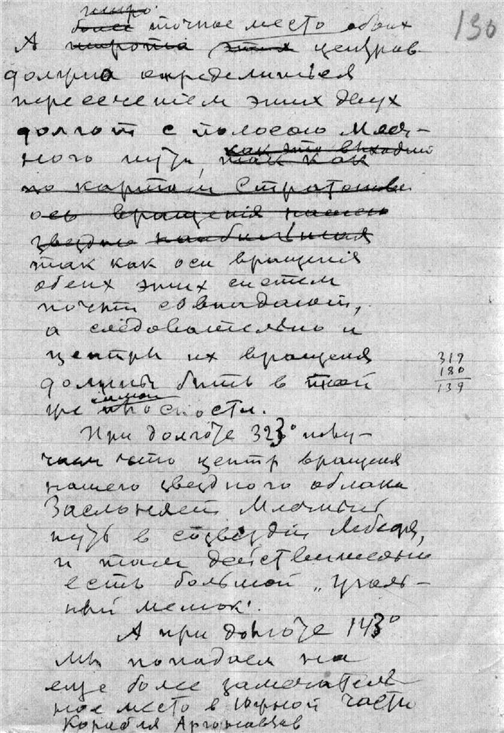 130
более точное место обоих
А широта этих центров
должна определиться
пересечением этих двух
долгот с полосою Млеч-
ного пути, как это выходит
так как
по картам Стратонова
ось вращенія нашего
звездного
так как оси вращенія
обеих этих систем
почти совпадают,
а следовательно и
центры их вращения
должны быть в той
же плоскости.
319
180
139
При долготе 323° полу-
чаем что центр вращения
нашего звездного облака
Заслоняет Млечный
путь в созвездіи Лебедя,
и там действительно
есть большой „Уголь-
ный мешок“.
А при долготе 143°
мы попадаем на
еще более замечатель-
ное место в Южной части
Корабля Аргонавтов